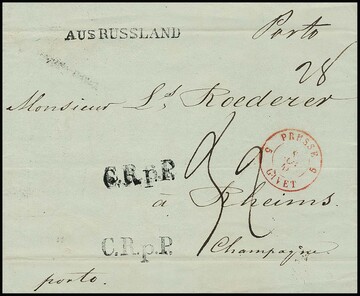 AUS RUSSLAND
Porto
28
Monsieur Ls. Roederer
C.R.p.R.
5 PRESSE 5
GIVET
à Rheims.
C.R.p.P.
Champagne.
porto.